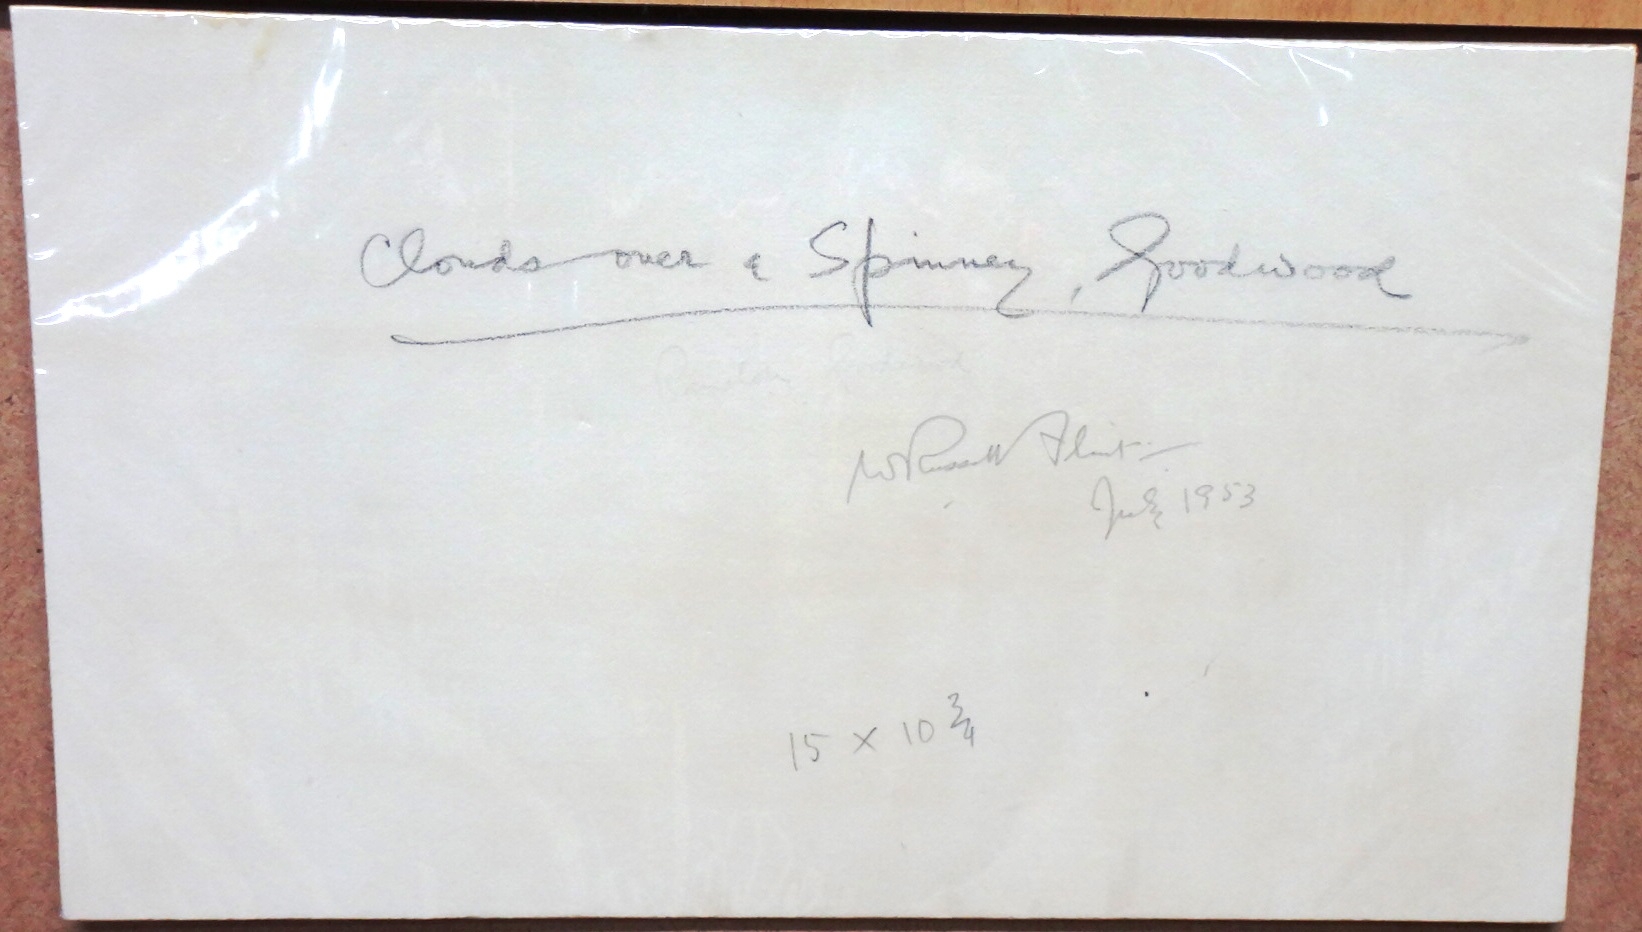 Clouds over a Spinney, Goodwood
W Russell Flint
July 1953
15 x 10 3/4